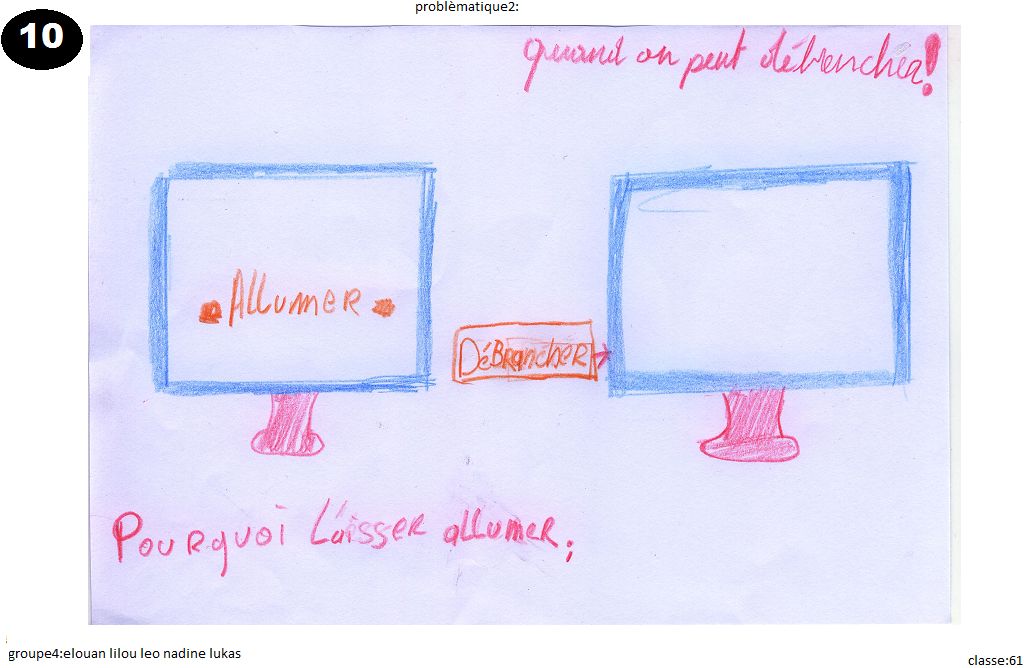 problèmatique2:
10
quand on peut débrencher!
Allumer
DéBRancheR
Pourquoi Laisser allumer;
groupe4:elouan lilou leo nadine lukas
classe:61